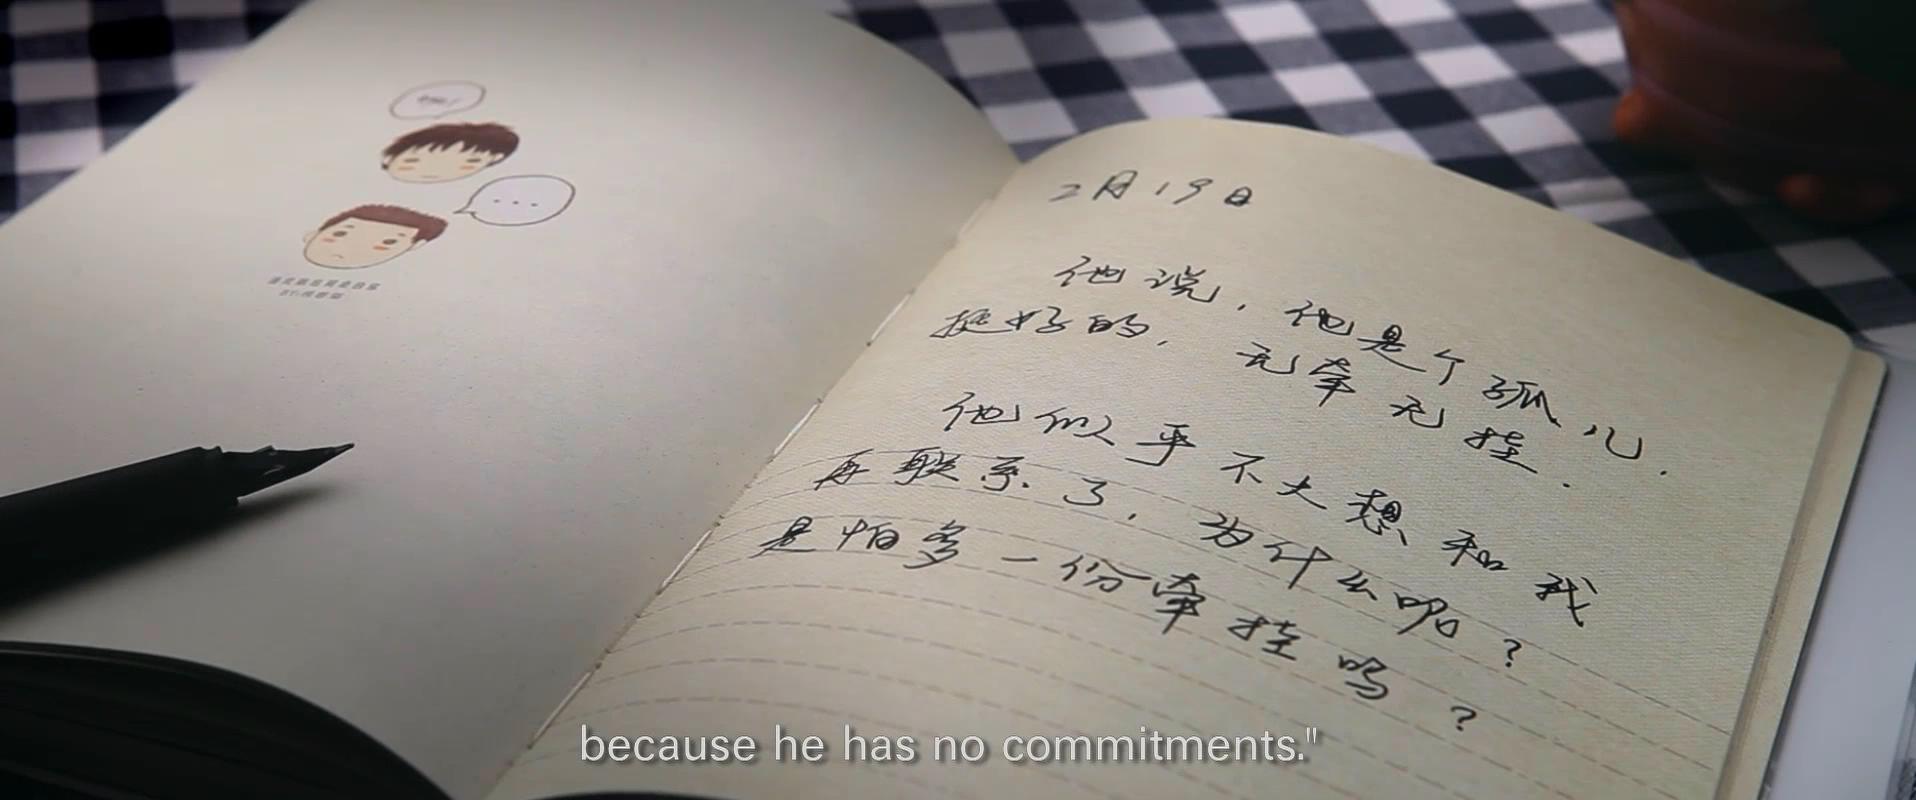 2月19日
他说，他是个孤儿．
挺好的，无牵无挂．
他似乎不大想和我
再联系了，为什么呢？
是怕多一份牵挂吗？
because he has no commitments."